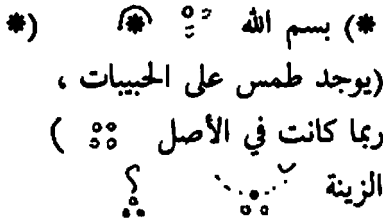 (*) بسم الله (*)
(يوجد طمس على الحبيبات ،
ربما كانت في الأصل )
الزينة ؟